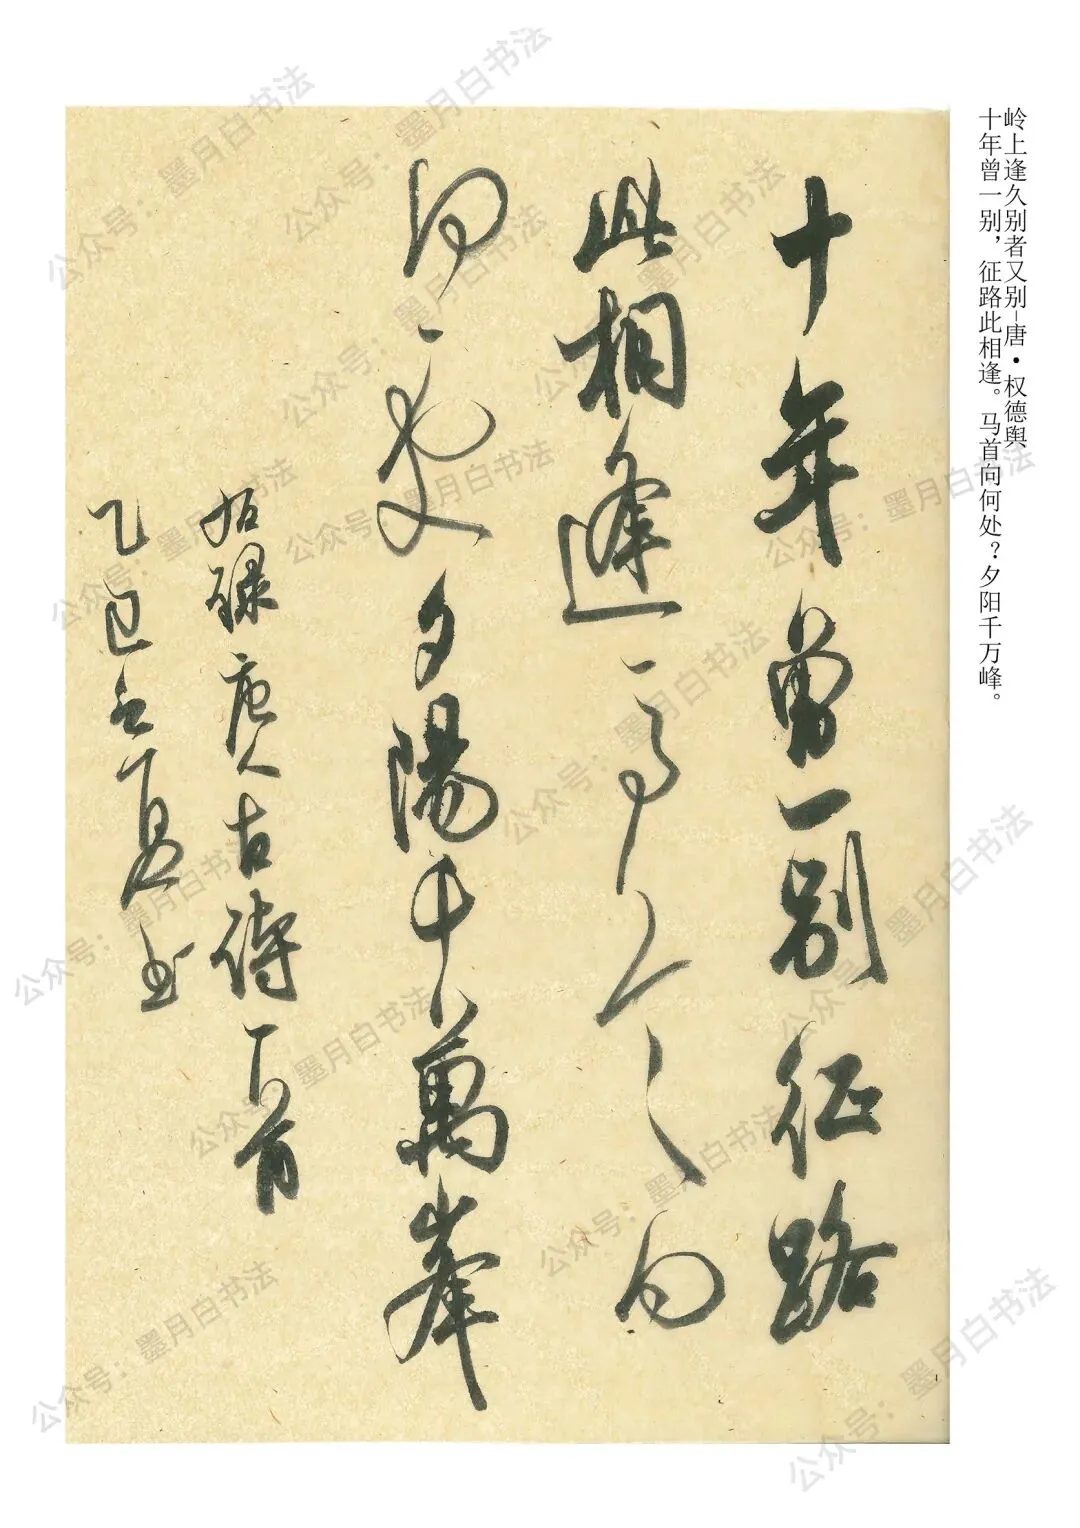 岭上逢久别者又别–唐·权德舆
十年曾一别，征路此相逢。马首向何处？夕阳千万峰。
十年曾一别征路
此相逢马首向
何处夕陽千萬峯
拈録唐人古詩一首
乙巳之夏书
公众号：墨月白书法